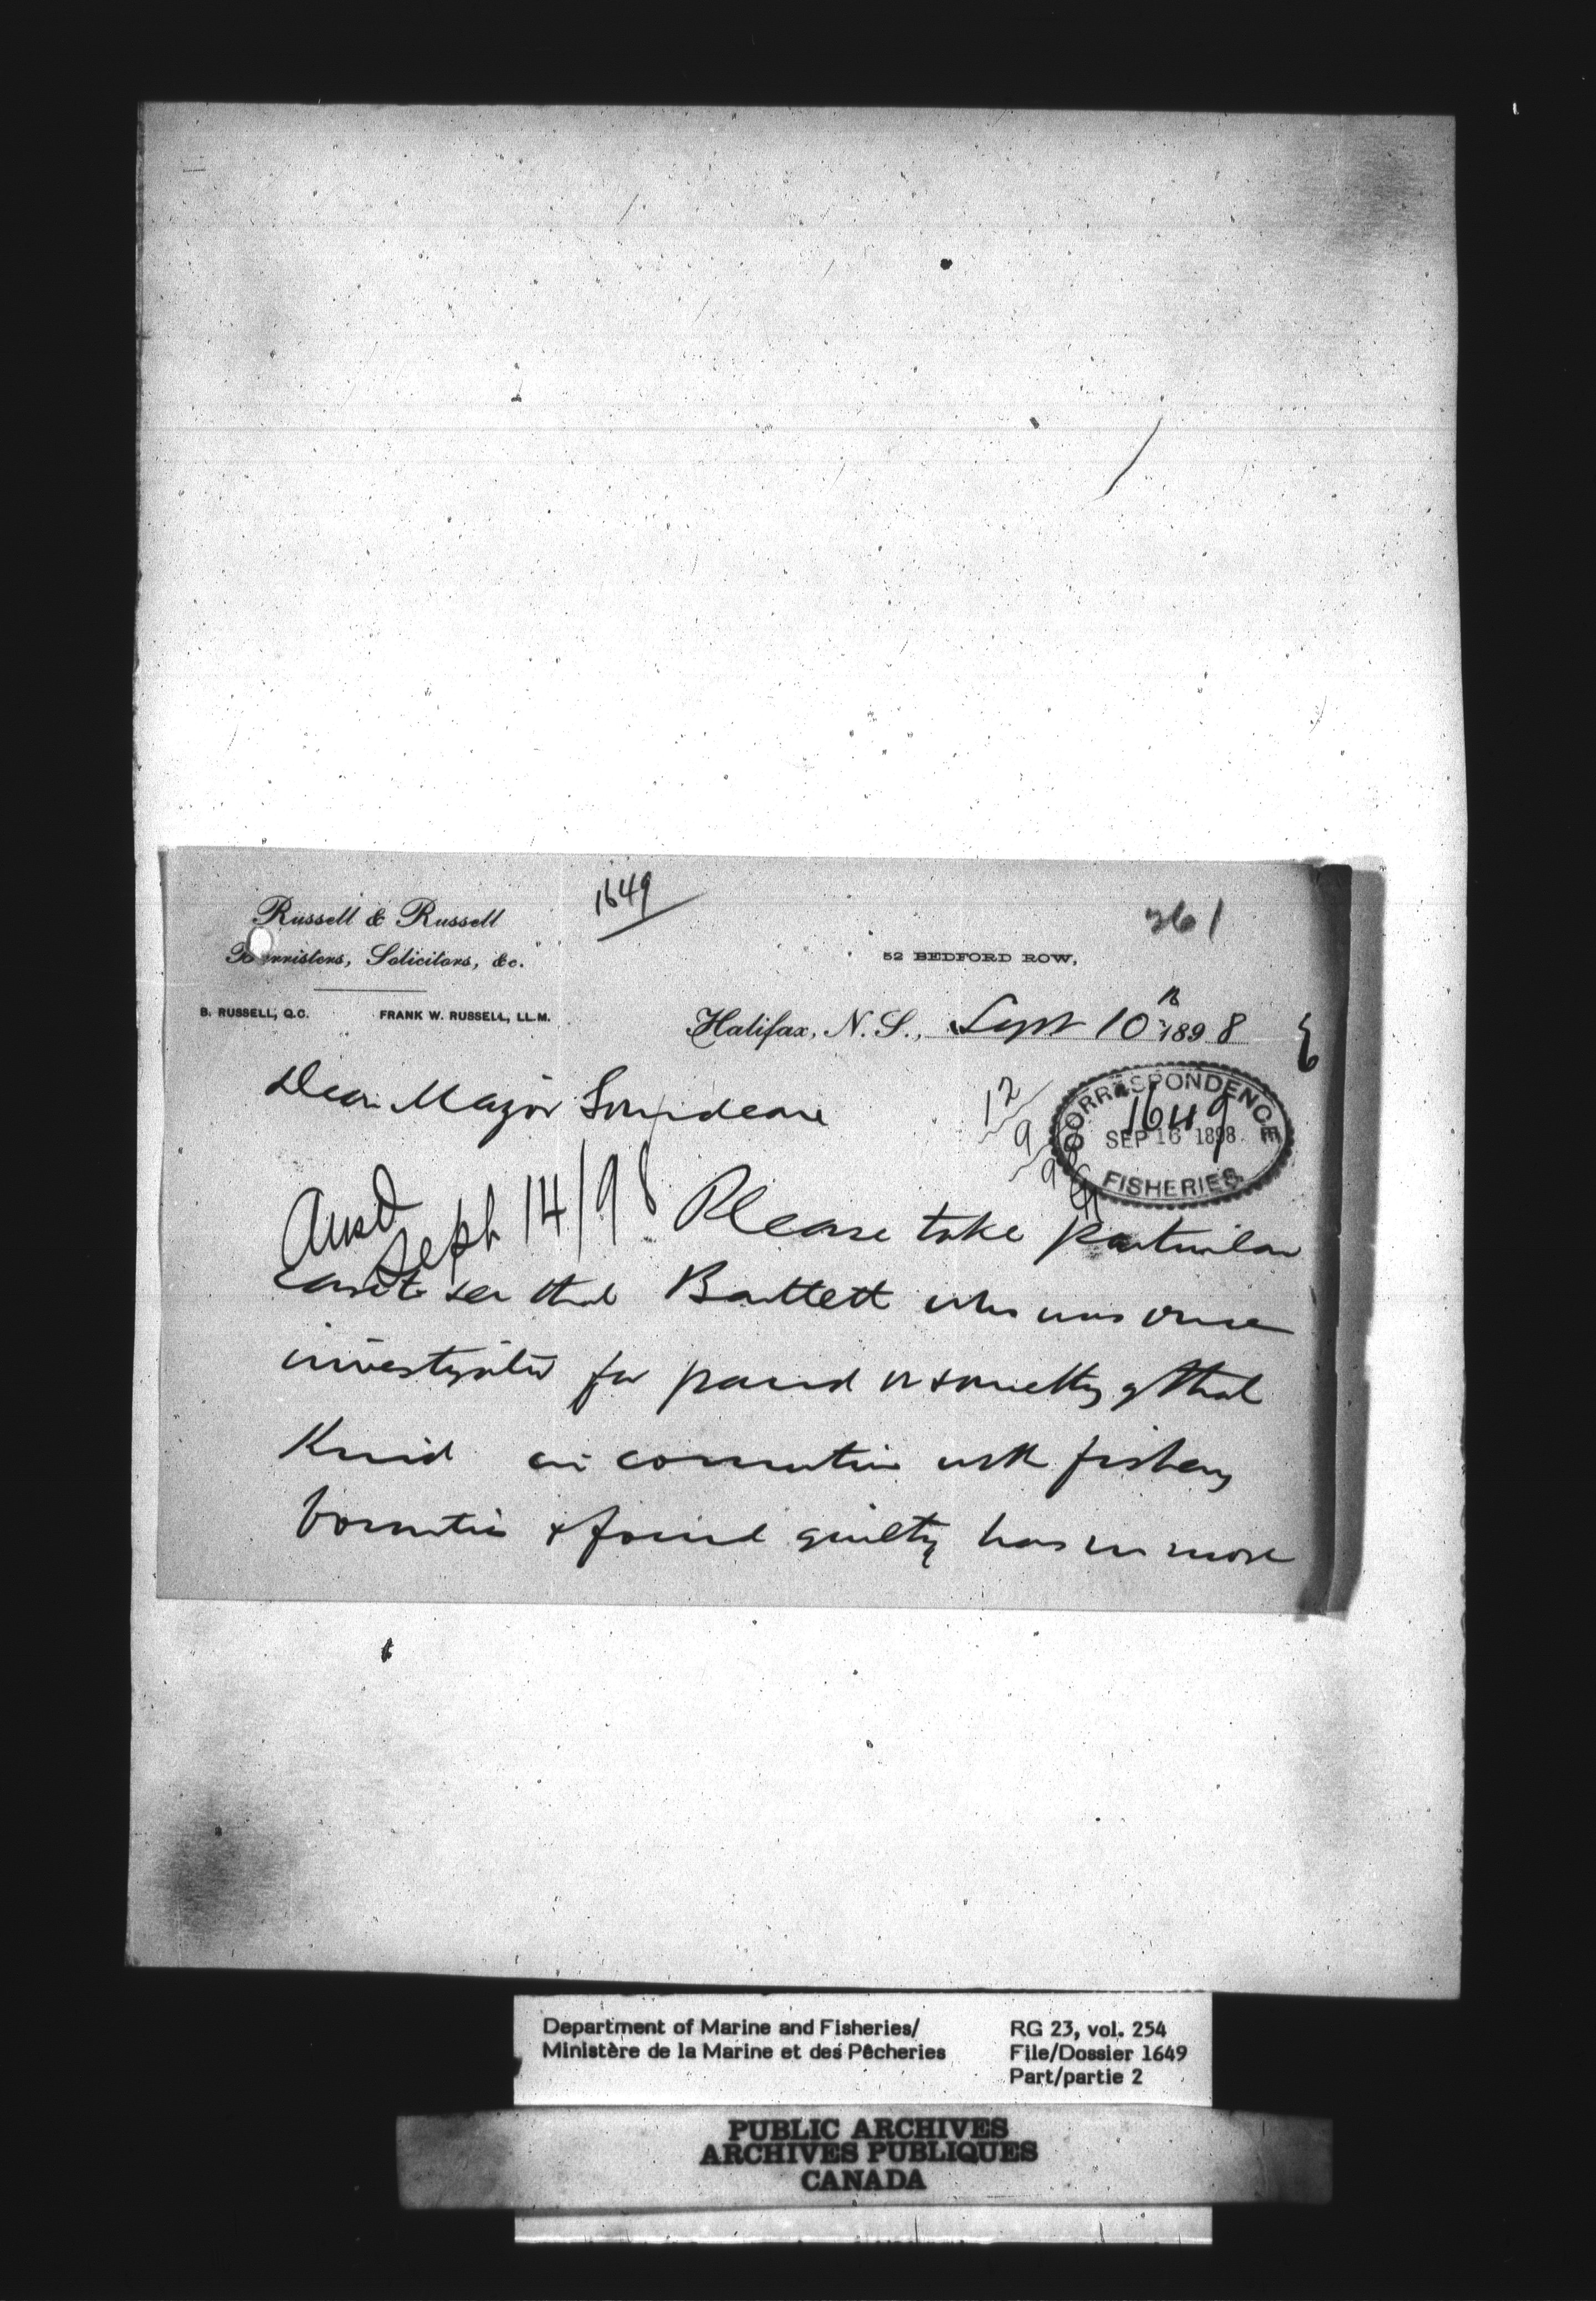 1649
Russell & Russell
Barristers, Solicitors, &c.
261
52 BEDFORD ROW,
B. RUSSELL, Q.C. FRANK W. RUSSELL, LL.M.
Halifax, N. S., Sept 10th 1898
Dear Major
12
9
98
CORRESPONDENCE
1649
SEP 16 1898
FISHERIES
Ansd
Sept 14/98
Please take particular
care to see that Bartlett who was once
investigated for fraud or something of that
kind in connection with fishery
bounties & found guilty has no more
Department of Marine and Fisheries/
Ministère de la Marine et des Pêcheries
RG 23, vol. 254
File/Dossier 1649
Part/partie 2
PUBLIC ARCHIVES
ARCHIVES PUBLIQUES
CANADA